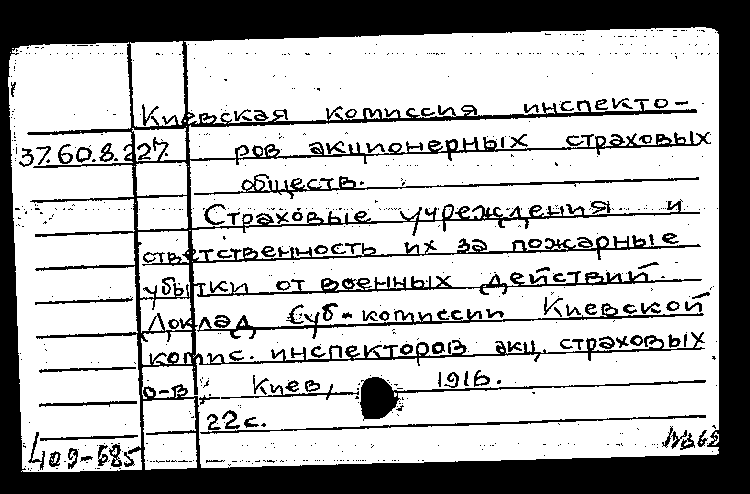 Киевская комиссия инспекто-
37.60.8.227. ров акционерных страховых
обществ.
Страховые учреждения и
ответственность их за пожарные
убытки от военных действий.
Доклад Суб-комиссии Киевской
комис. инспекторов акц. страховых
о-в, Киев, 1916.
22с.
409-685